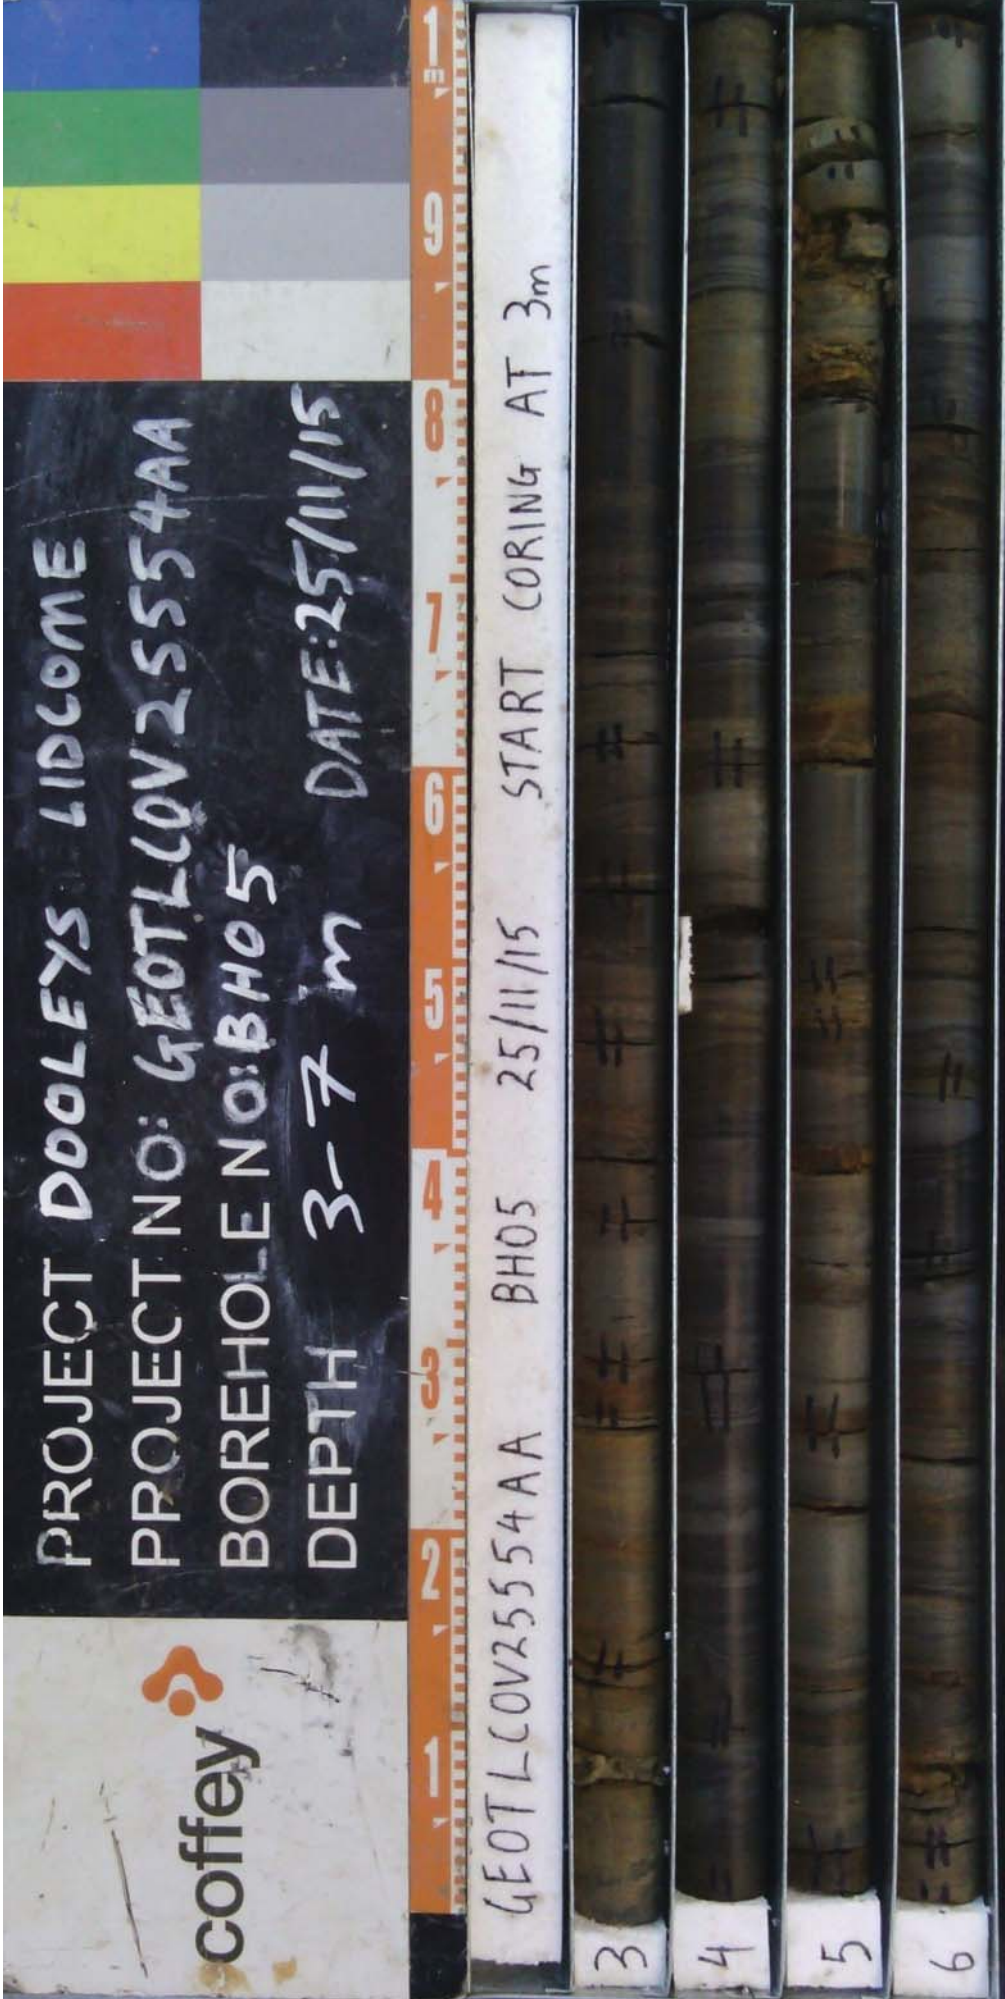 PROJECT DOOLEYS LIDCOME
PROJECT NO: GEOTLCOV25554AA
BOREHOLE NO: BH05
DEPTH 3-7 m DATE: 25/11/15
coffey
1m
9
8
7
6
5
4
3
2
1
GEOTLCOV25554AA BH05 25/11/15 START CORING AT 3m
3
4
5
6